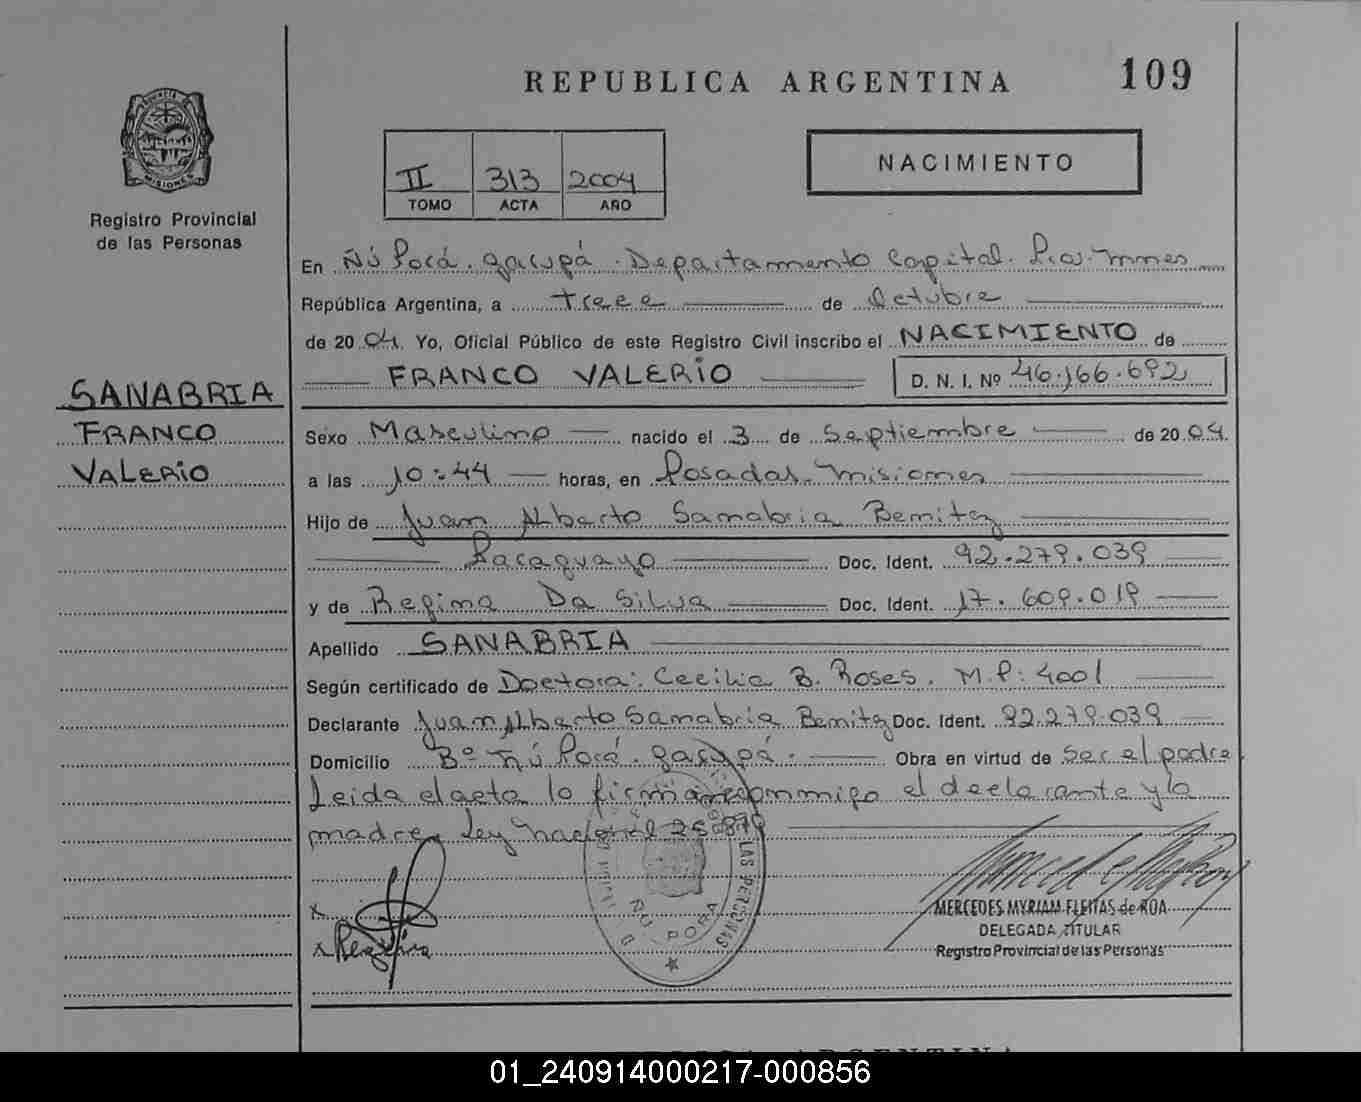 REPUBLICA ARGENTINA
109
PROVINCIA
MISIONES
Registro Provincial
de las Personas
II 313 2004
TOMO ACTA AÑO
NACIMIENTO
En Ñú Porá. Garupá. Departamento Capital. Pcia. Mnes
República Argentina, a trece de Octubre
de 2004. Yo, Oficial Público de este Registro Civil inscribo el NACIMIENTO de
FRANCO VALERIO D. N. I. Nº 46.166.692
SANABRIA
FRANCO
VALERIO
Sexo Masculino nacido el 3 de Septiembre de 2004.
a las 10:44 horas, en Posadas. Misiones
Hijo de Juan Alberto Sanabria Benitez
Paraguayo Doc. Ident. 92.279.039
y de Regina Da Silva Doc. Ident. 17.609.019
Apellido SANABRIA
Según certificado de Doctora: Cecilia B. Roses. M.P: 4001
Declarante Juan Alberto Sanabria Benitez Doc. Ident. 92.279.039
Domicilio Bº Ñú Porá. Garupá. Obra en virtud de ser el padre
Leida el acta la firman conmigo el declarante y la
madre. Ley Nacional 25.879
x
x Regina
LAS PERSONAS
ÑU PORA
MERCEDES MYRIAM FLEITAS de ROA
DELEGADA TITULAR
Registro Provincial de las Personas
01_240914000217-000856